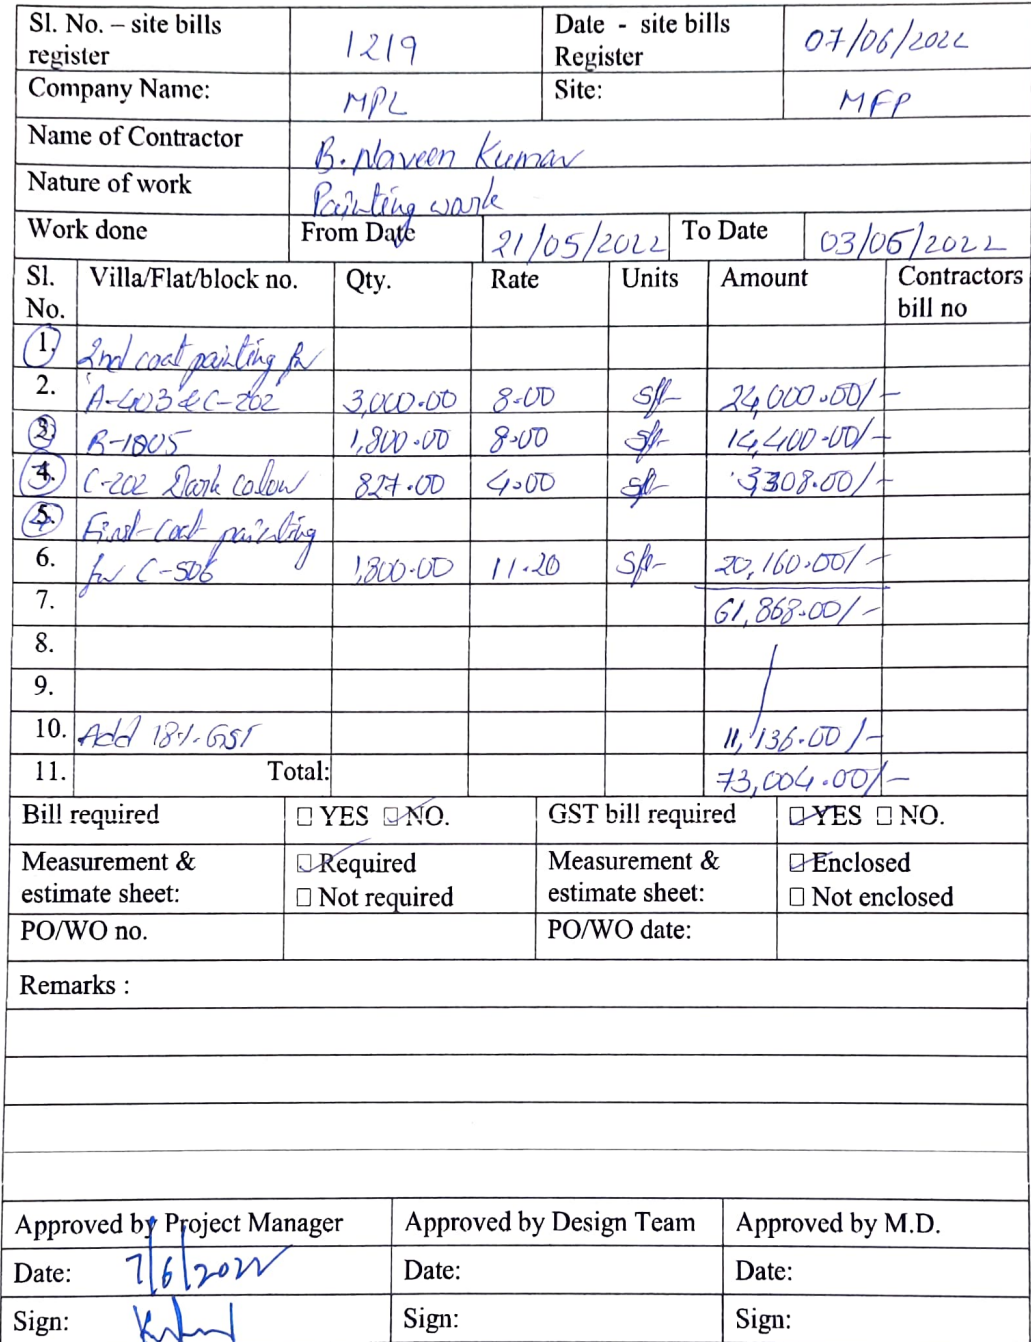 Sl. No. – site bills register 1219 Date - site bills Register 07/06/2022
Company Name: MPL Site: MFP
Name of Contractor B. Naveen Kumar
Nature of work Painting work
Work done From Date 21/05/2022 To Date 03/06/2022
Sl. No. Villa/Flat/block no. Qty. Rate Units Amount Contractors bill no
1. 2nd coat painting for
2. A-403 & C-202 3,000.00 8.00 Sft 24,000.00/-
3. B-1005 1,800.00 8.00 Sft 14,400.00/-
4. C-202 Dark colour 827.00 4.00 Sft 3308.00/-
5. First coat painting
6. for C-506 1,800.00 11.20 Sft 20,160.00/-
7. 61,868.00/-
8.
9.
10. Add 18%. GST 11,136.00/-
11. Total: 73,004.00/-
Bill required YES NO. GST bill required YES NO.
Measurement & estimate sheet: Required Not required Measurement & estimate sheet: Enclosed Not enclosed
PO/WO no. PO/WO date:
Remarks :
Approved by Project Manager Approved by Design Team Approved by M.D.
Date: 7/6/2022 Date: Date:
Sign: Sign: Sign: